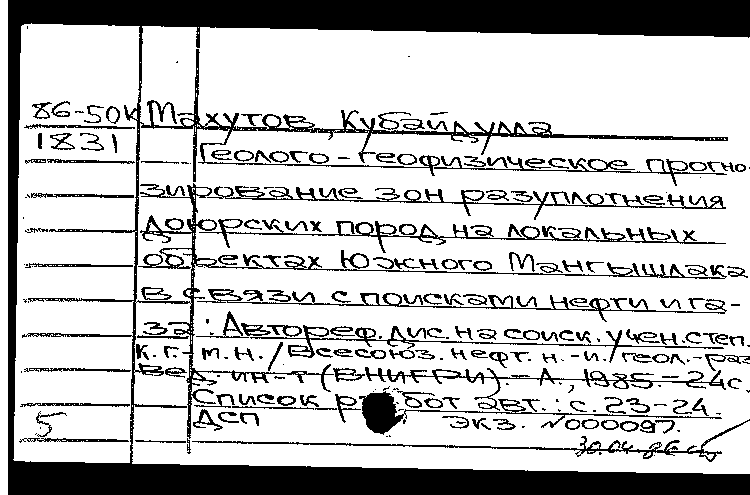 86-50к Махутов, Кубайдулла
1831 Геолого-геофизическое прогно-
зирование зон разуплотнения
доюрских пород на локальных
объектах Южного Мангышлака
в связи с поисками нефти и га-
за: Автореф. дис. на соиск. учен. степ.
к. г.-м. н. / Всесоюз. нефт. н.-и. геол.-раз
вед. ин-т (ВНИГРИ). - Л., 1985. - 24с.
Список работ авт.: с. 23-24.
5 ДСП экз. №000097.
30.04.86